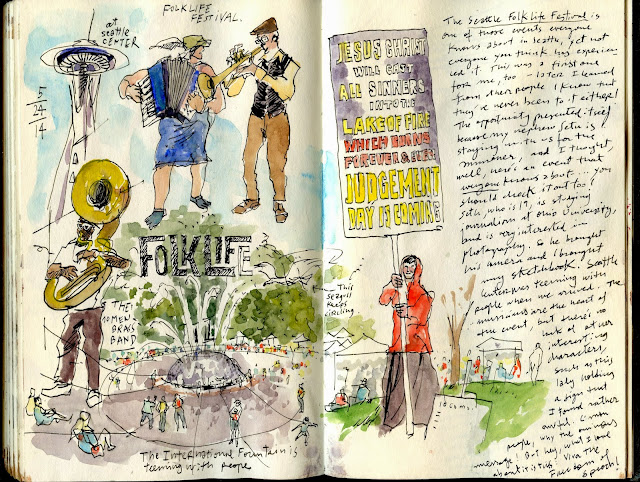 FOLKLIFE
FESTIVAL.
at
seattle
CENTER
5
24
14
FOLKLIFE
THE
MENS
BRASS
BAND
The International Fountain is
teeming with people
This
seagull
keeps
circling.
JESUS CHRIST
WILL CAST
ALL SINNERS
INTO THE
LAKE OF FIRE
WHICH BURNS
FOREVER & EVER
JUDGEMENT
DAY IS COMING
The Seattle FolkLife Festival is
one of those events everyone
knows about in Seattle, yet not
everyone you think has experien
ced it. This was a first one
for me, too - later I learned
from other people I know that
they've never been to it either!
The opportunity presented itself
because my nephew Seth is
staying with us for the
summer, and I thought,
well, here's an event that
everyone knows about... you
should check it out too!
Seth, who is 19, is studying
journalism at Ohio University,
and is very interested in
photography. So he brought
his camera and I brought
my sketchbook. Seattle
Center was teeming with
people when we arrived. The
musicians are the heart of
the event, but there's no
lack of other
interesting
characters,
such as this
lady holding
a sign that
I found rather
awful. C'mon
people, why the ominous
message? But hey, what I love
about it is this: Viva The
Freedom of
Speech!